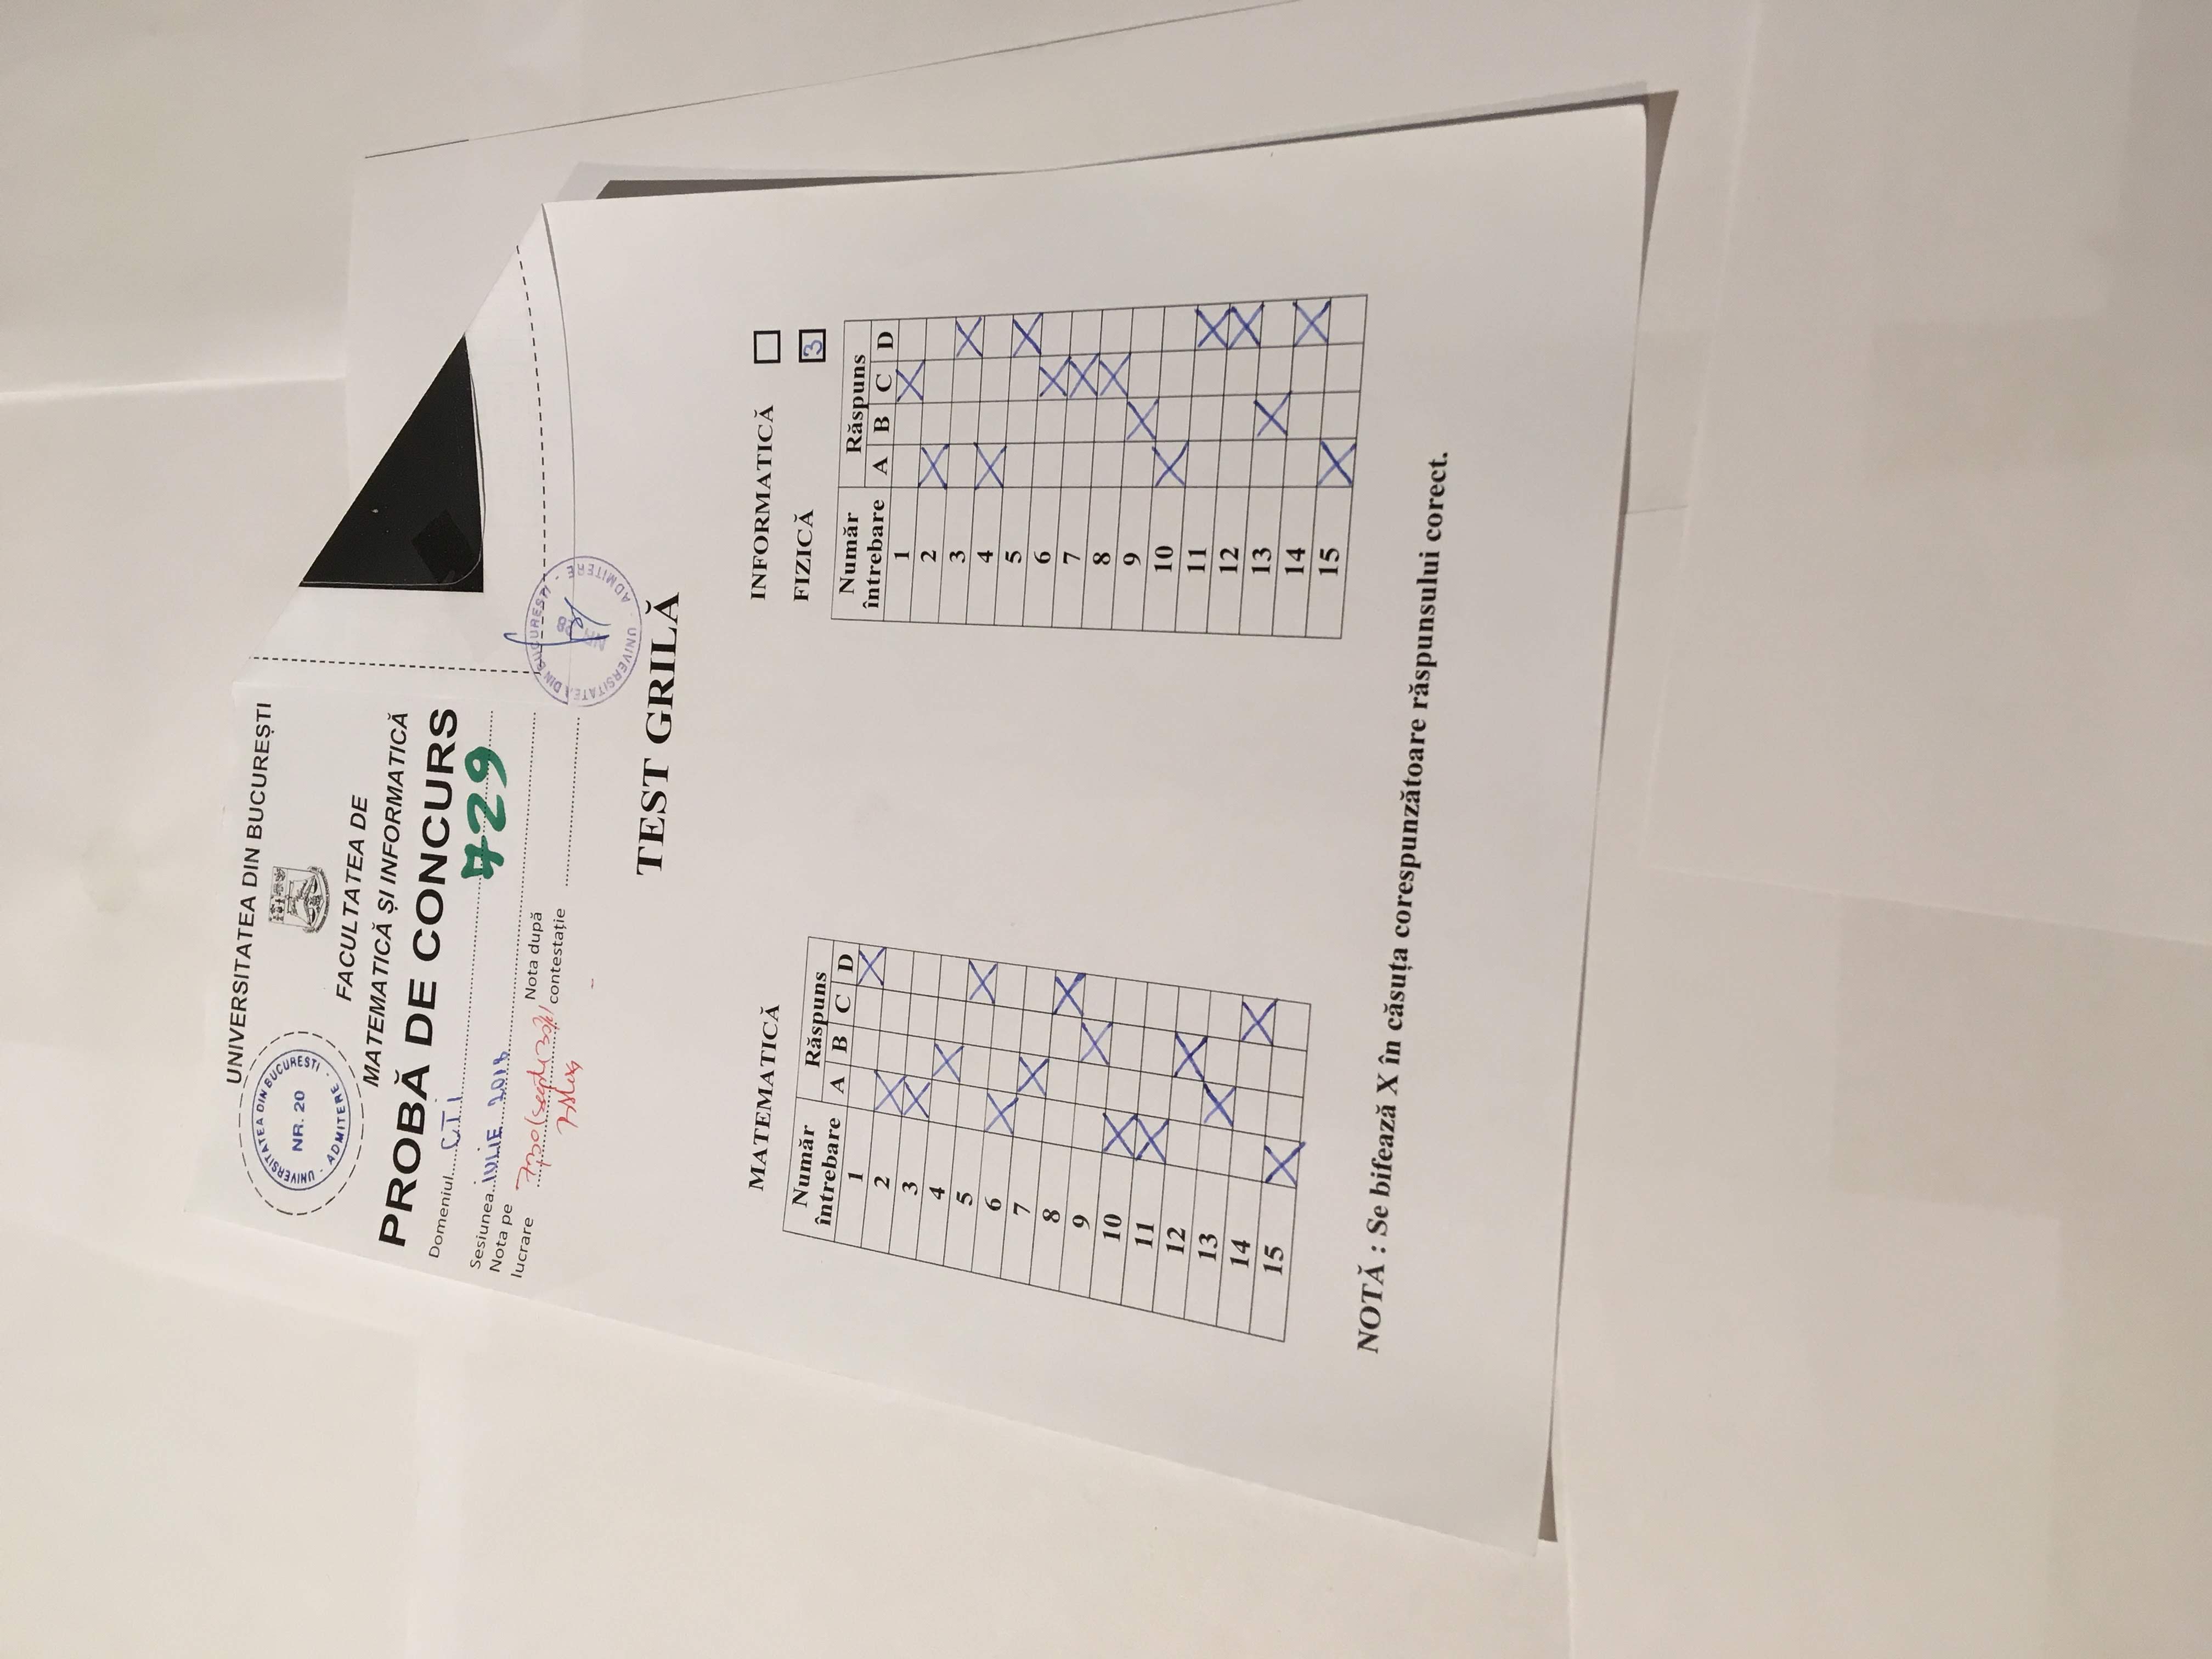 UNIVERSITATEA DIN BUCUREȘTI
UNIVERSITATEA DIN BUCUREȘTI
NR. 20
ADMITERE
FACULTATEA DE
MATEMATICĂ ȘI INFORMATICĂ
PROBĂ DE CONCURS
Domeniul.....CTI
729
Sesiunea..IULIE 2018
Nota pe
lucrare
7,30
Nota după
contestație
UNIVERSITATEA DIN BUCUREȘTI
NR. 28
ADMITERE
TEST GRILĂ
MATEMATICĂ
Număr întrebare Răspuns
A B C D
1 X
2 X
3 X
4 X
5 X
6 X
7 X
8 X
9 X
10 X
11 X
12 X
13 X
14 X
15 X
INFORMATICĂ
FIZICĂ 3
Număr întrebare Răspuns
A B C D
1 X
2 X
3 X
4 X
5 X
6 X
7 X
8 X
9 X
10 X
11 X
12 X
13 X
14 X
15 X
NOTĂ : Se bifează X în căsuța corespunzătoare răspunsului corect.